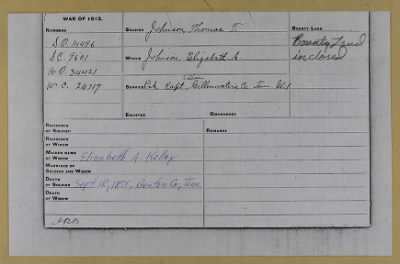 WAR OF 1812.
NUMBERS
S.O. 14496
S.C. 9601
W.O. 34421
W.C. 24717
SOLDIER Johnson, Thomas T.
WIDOW Johnson, Elizabeth A
SERVICE Pvt Capt. Gillenwaters Co Tenn
ENLISTED
DISCHARGED
BOUNTY LAND
Bounty Land
inclosed
RESIDENCE
OF SOLDIER
RESIDENCE
OF WIDOW
MAIDEN NAME
OF WIDOW Elizabeth A. Kelley
MARRIAGE OF
SOLDIER AND WIDOW
DEATH
OF SOLDIER Sept 18, 1871, Benton Co., Tenn
DEATH
OF WIDOW
REMARKS